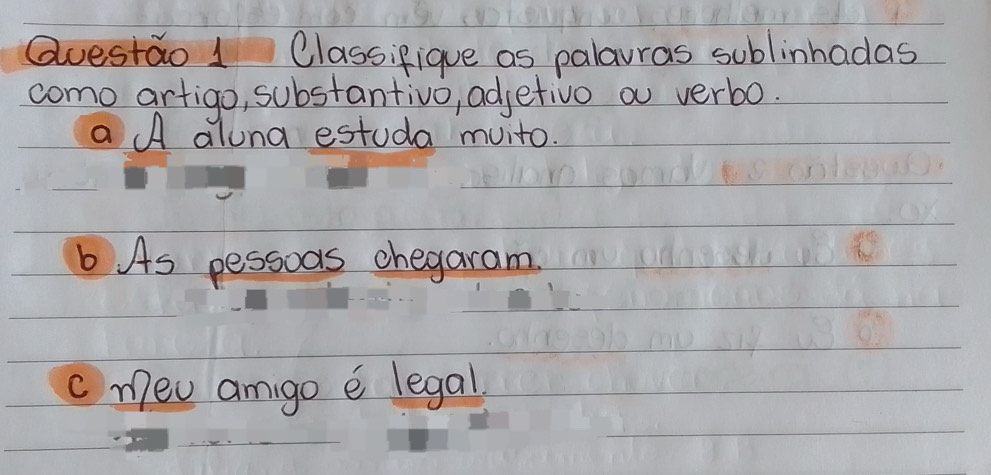 Questão 1 Classifique as palavras sublinhadas
como artigo, substantivo, adjetivo ou verbo.
a A aluna estuda muito.
b As pessoas chegaram.
c Meu amigo é legal.